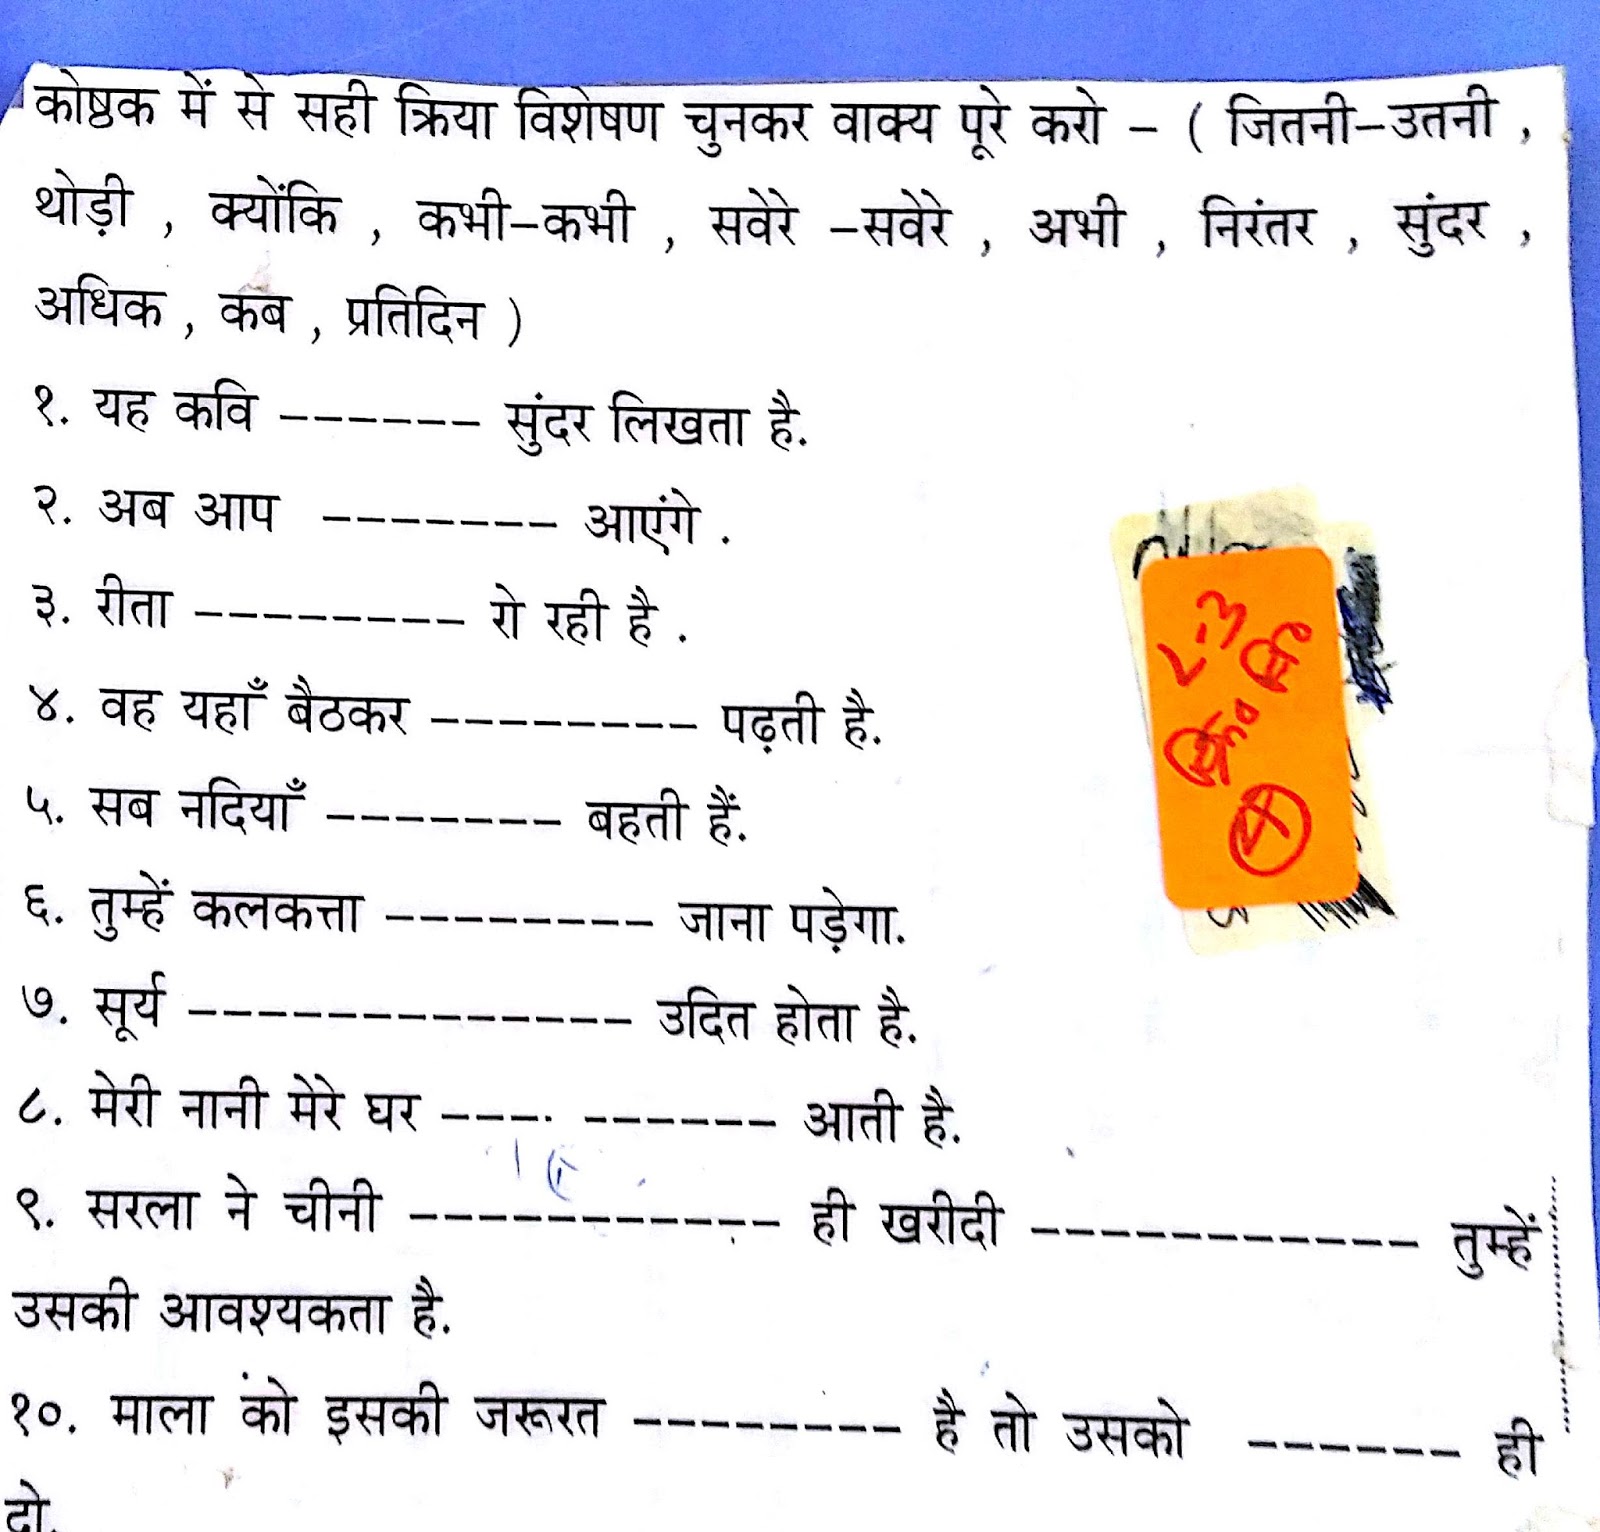 कोष्ठक में से सही क्रिया विशेषण चुनकर वाक्य पूरे करो – ( जितनी–उतनी ,
थोड़ी , क्योंकि , कभी–कभी , सवेरे –सवेरे , अभी , निरंतर , सुंदर ,
अधिक , कब , प्रतिदिन )
१. यह कवि ------ सुंदर लिखता है.
२. अब आप ------- आएंगे .
३. रीता -------- रो रही है .
४. वह यहाँ बैठकर -------- पढ़ती है.
५. सब नदियाँ ------- बहती हैं.
६. तुम्हें कलकत्ता -------- जाना पड़ेगा.
७. सूर्य ------------- उदित होता है.
८. मेरी नानी मेरे घर ---- ------ आती है.
९. सरला ने चीनी ----------- ही खरीदी ----------- तुम्हें
उसकी आवश्यकता है.
१०. माला को इसकी जरूरत -------- है तो उसको ------ ही
दो.